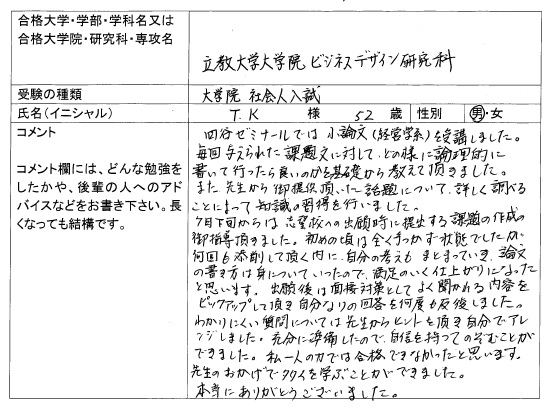 合格大学・学部・学科名又は
合格大学院・研究科・専攻名
立教大学大学院 ビジネスデザイン研究科
受験の種類
大学院 社会人入試
氏名(イニシャル)
T.K 様 52 歳 性別 男・女
コメント
コメント欄には、どんな勉強を
したかや、後輩の人へのアド
バイスなどをお書き下さい。長
くなっても結構です。
四谷ゼミナールでは小論文(経営学系)を受講しました。
毎回与えられた課題文に対して、どの様に論理的に
書いて行ったら良いのかを基礎から教えて頂きました。
また先生から御提供頂いた話題について、詳しく調べる
ことによって知識の習得を行いました。
7月下旬からは志望校への出願時に提出する課題の作成の
御指導頂きました。初めの頃は全く手つかず状態でしたが、
何回も添削して頂く内に、自分の考えもまとまっていき、論文
の書き方は身についていったので、満足のいく仕上がりになった
と思います。出願後は面接対策としてよく聞かれる内容を
ピックアップして頂き自分なりの回答を何度も反復しました。
わかりにくい質問については先生からヒントを頂き自分でアレ
ンジしました。充分に準備したので、自信を持ってのぞむことが
できました。私一人の力では合格できなかったと思います。
先生のおかげで多くを学ぶことができました。
本当にありがとうございました。